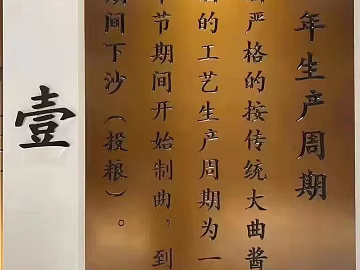 年生产周期
严格的按传统大曲酱
的工艺生产周期为一
节期间开始制曲，到
间下沙（投粮）。
壹